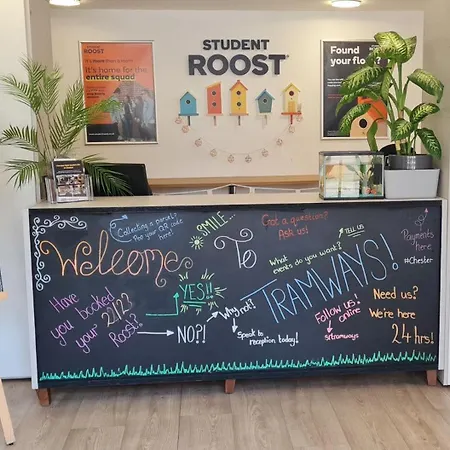 STUDENT
ROOST
STUDENT
ROOST
It's home for the
entire squad
Found
your flo
Collecting a parcel?
Pop your QR code
here!
SMILE...
Got a question?
Ask us!
TELL
US
Payments
here
#Chester
Welcome
To
What
events do you want?
TRAMWAYS!
Have
you booked
your 22/23
Roost?
YES!!
NO?!
Why
not?
Speak to
reception today!
Follow us
online
srtramways
Need us?
We're here
24hrs!